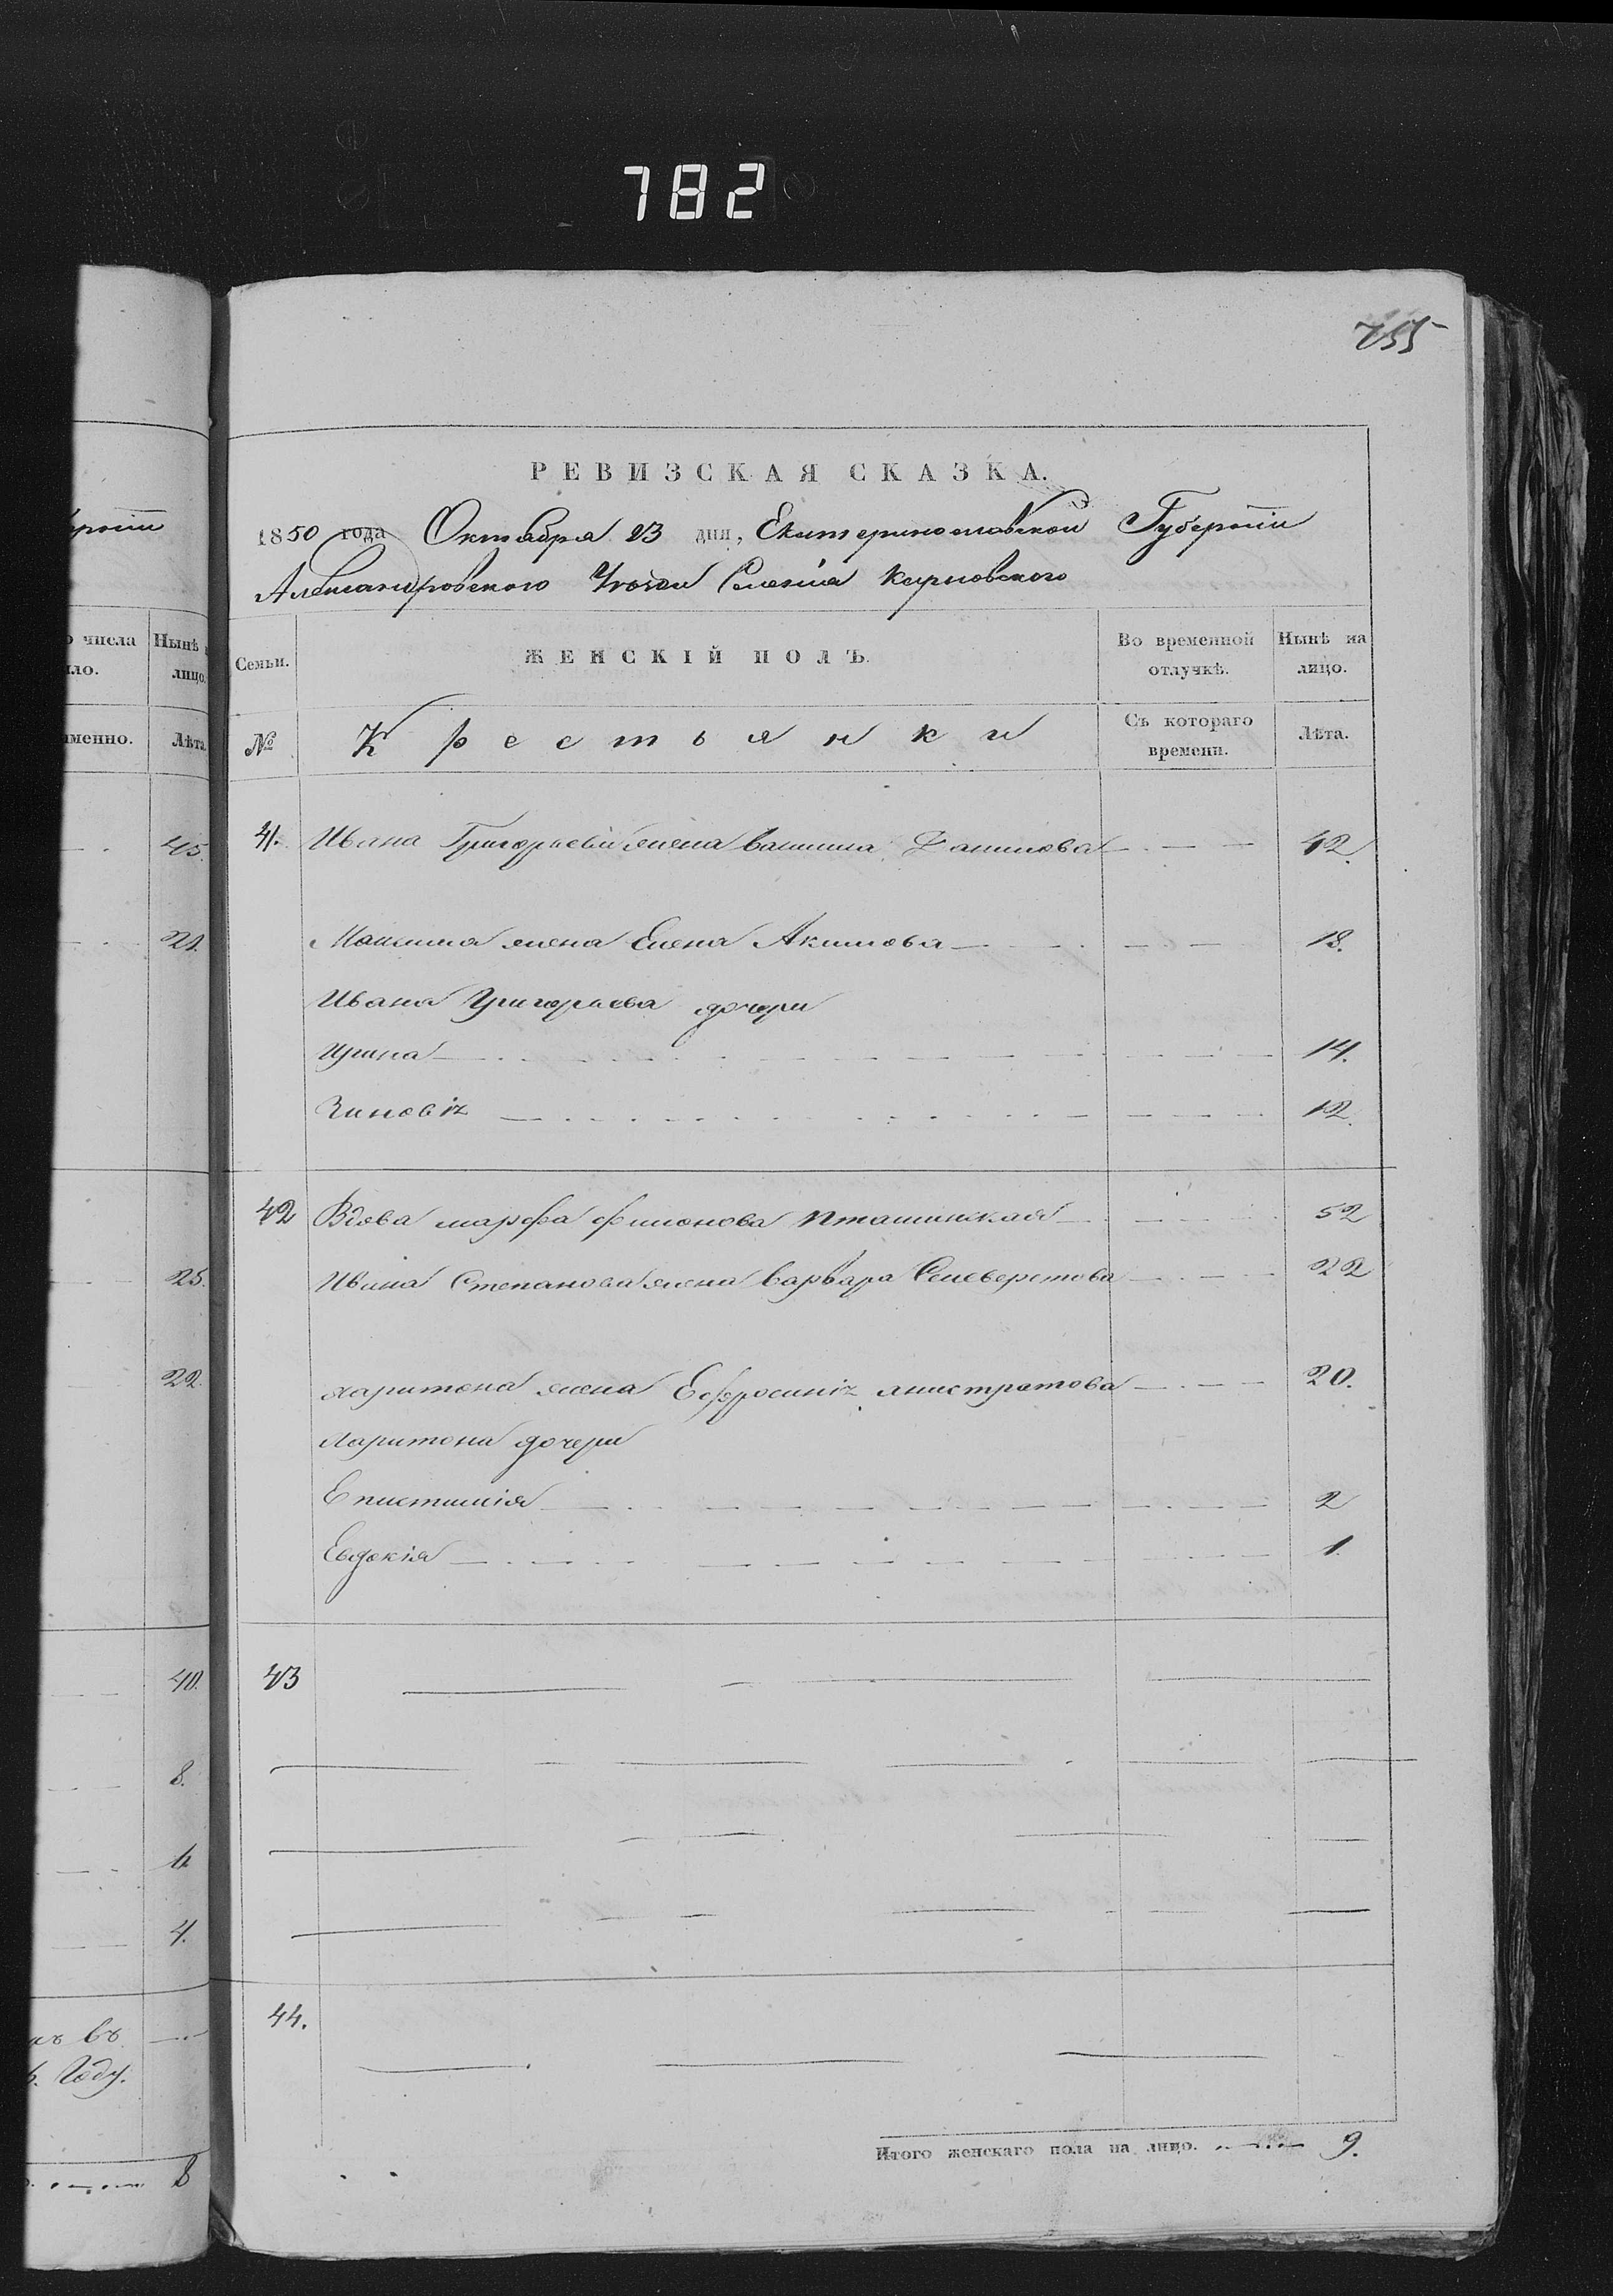 782
755
рніи
РЕВИЗСКАЯ СКАЗКА.
1850 года Октября 23 дня, Екатеринославской Губерніи
Александровского Уезда Селенія
о числа
ло.
Нынѣ
лицо.
Семьи.
ЖЕНСКІЙ ПОЛЪ.
Во временной
отлучкѣ.
Нынѣ на
лицо.
именно.
Лѣта
№
Крестьянки
Съ котораго
времени.
Лѣта.
45.
41. Ивана Григорьева жена Данилова 42.
21.
Максима жена Елена Акимова 18.
Ивана Григорьева дочери
Ирина 14.
Зиновія 12.
42 Вдова марфа филонова Пташинская 52
25.
Ивана Степанова жена Варвара Селеверстова 22
22.
харитона жена Ефросинія анистратова 20.
харитона дочери
Епистимія 2
Евдокія 1.
40.
43
8.
6
4.
44.
въ
Году.
Итого женскаго пола на лицо. 9.
8